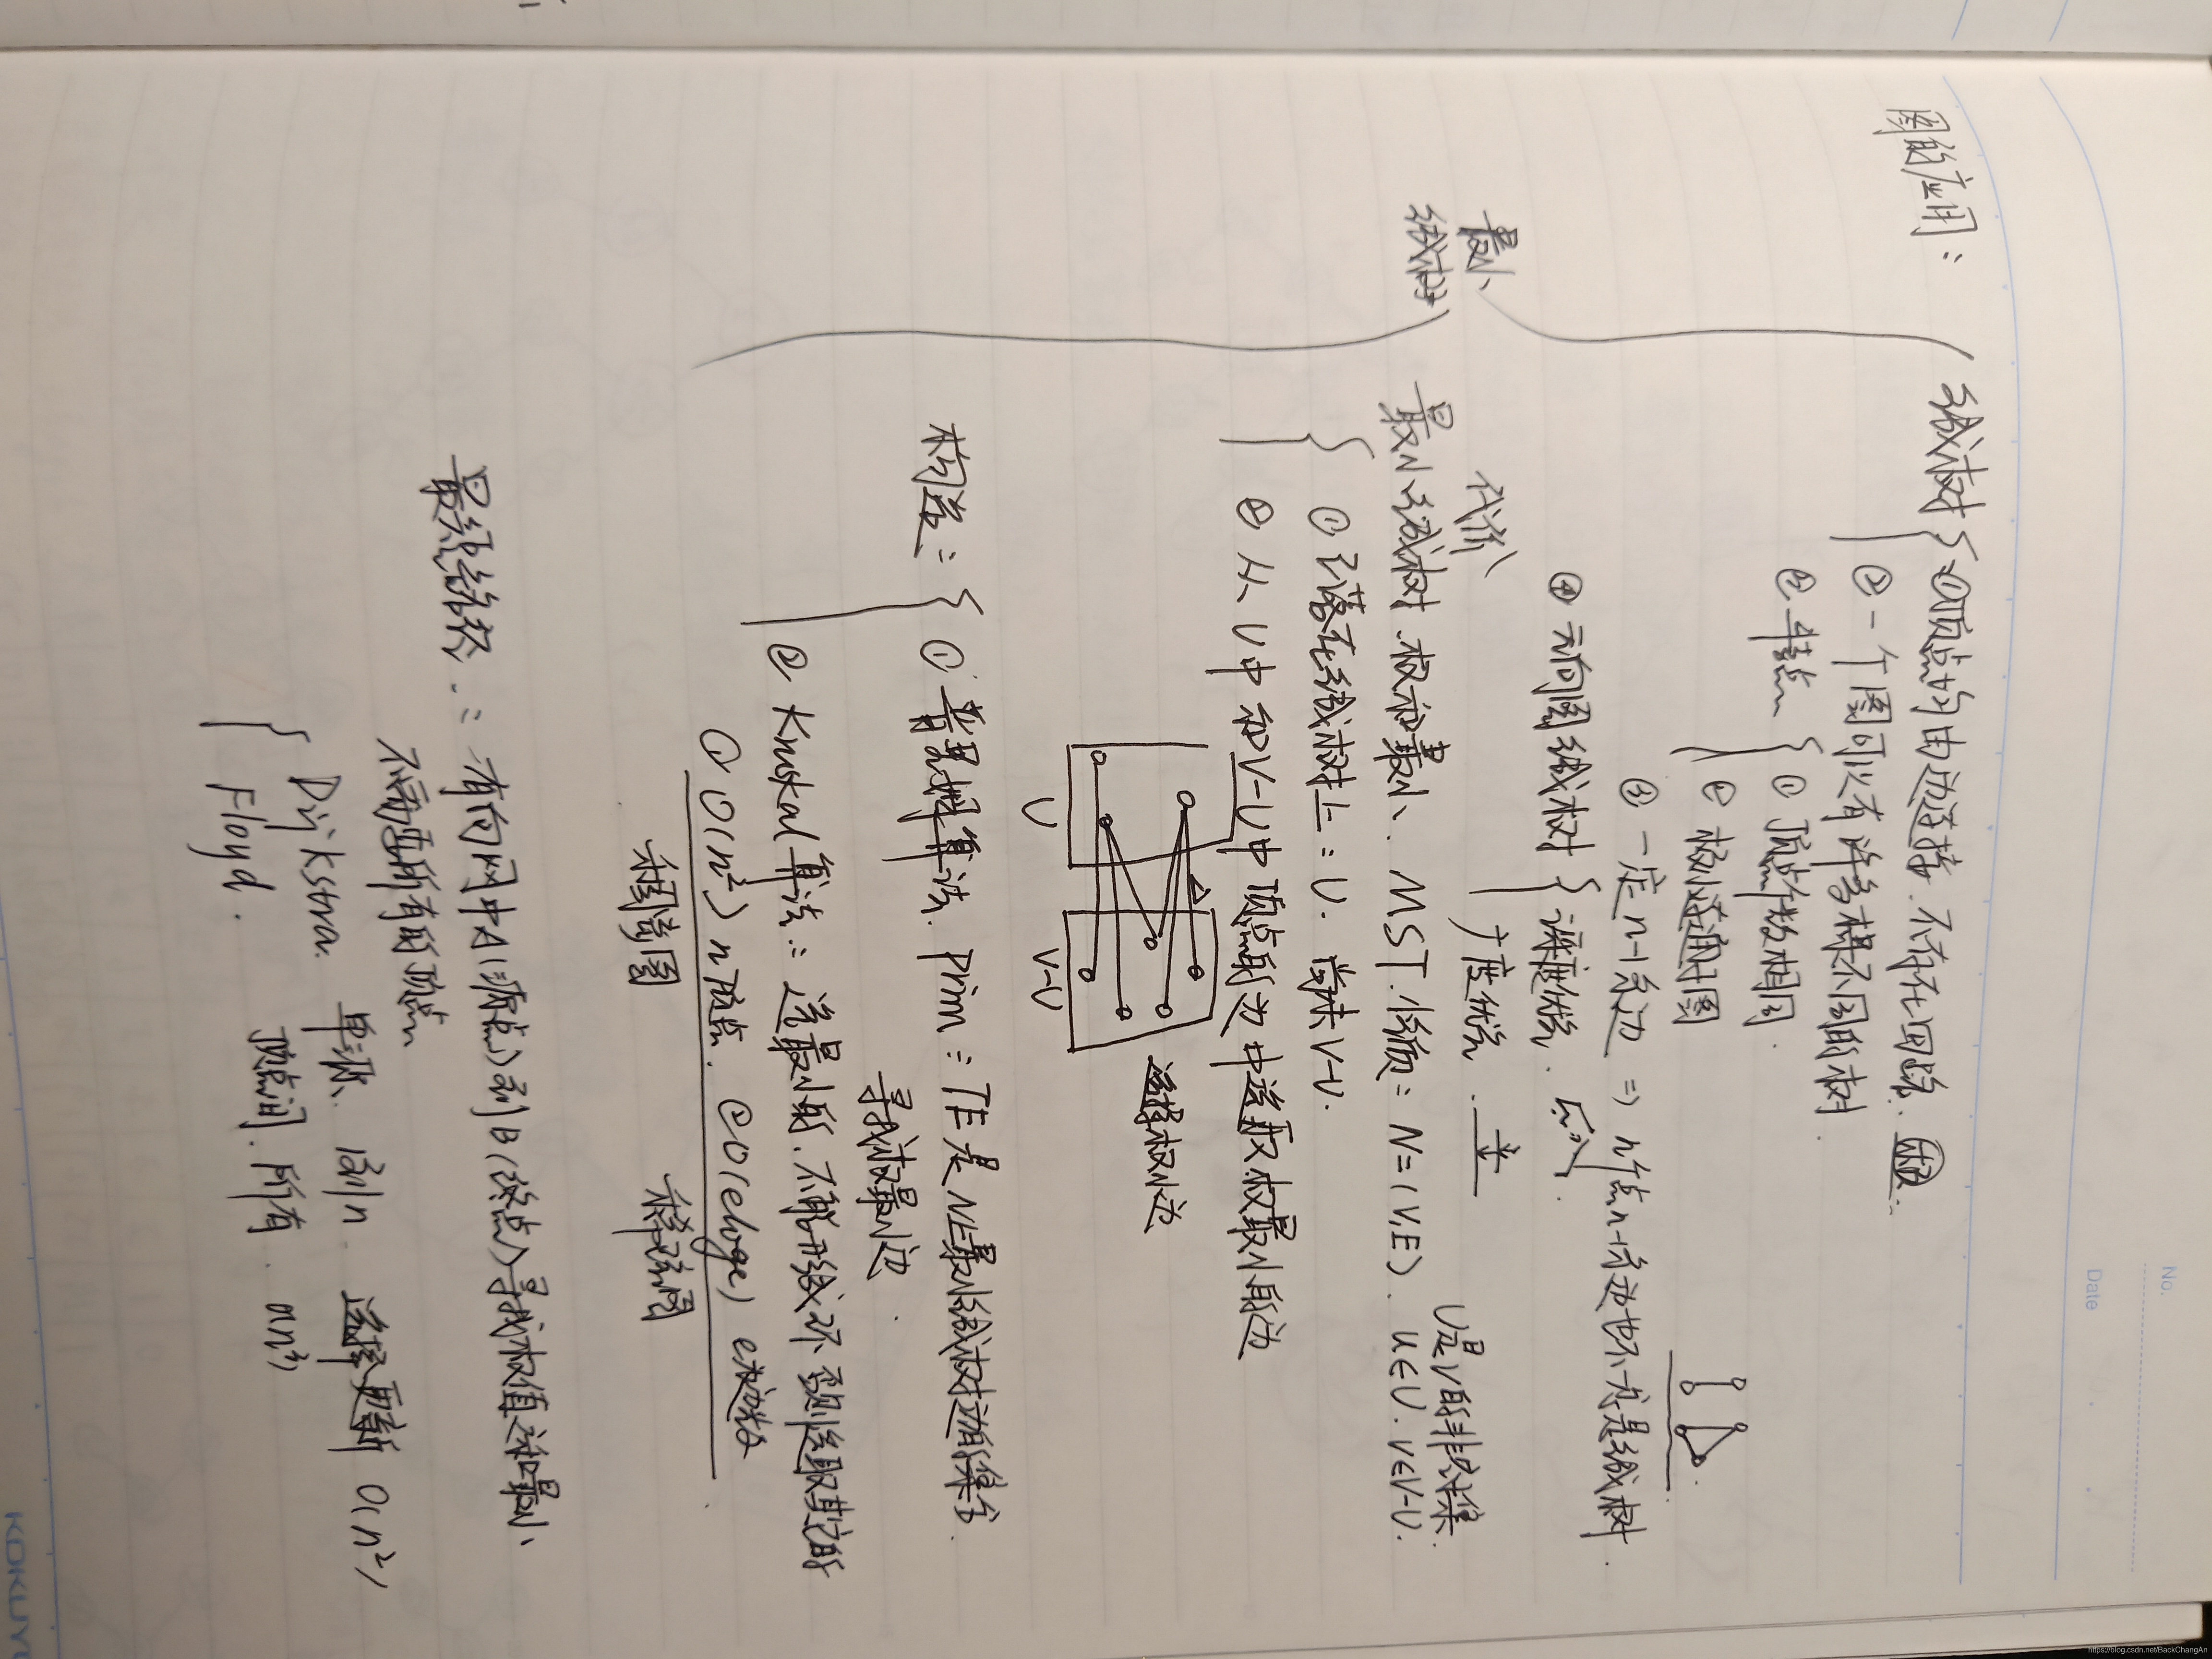 No.
Date
图的应用：
最小
生成树
生成树 ①顶点均由边连接，不存在回路。
②一个图可以有许多棵不同的树
③特点 ①顶点个数相同
②极小连通子图
③一定n-1条边 => n个点n-1条边也不一定是生成树.
④无向图生成树 深度优先.
广度优先.
代价
最小生成树：权和最小、MST.性质：N=(V,E). u∈U. v∈V-U.
U是V的非空子集
①已落在生成树上：U. 尚未V-U.
②从U中和V-U中顶点的边中选取权最小的边
U
V-U
选择权小边
构造：①普里姆算法. Prim：TE是N上最小生成树边的集合.
寻找权最小边.
②Kruskal算法：选最小的，不能形成环 否则选取其它的
①O(n²) n顶点. ②O(eloge) e边数
稠密图
稀疏图
最短路径：有向网中A(源点)到B(终点)寻找权值之和最小
不需要所有的顶点
Dijkstra. 单源 1到n 选择更新 O(n²)
Floyd. 顶点间. 所有. O(n³)
KOKUYO
https://blog.csdn.net/BackChangAn